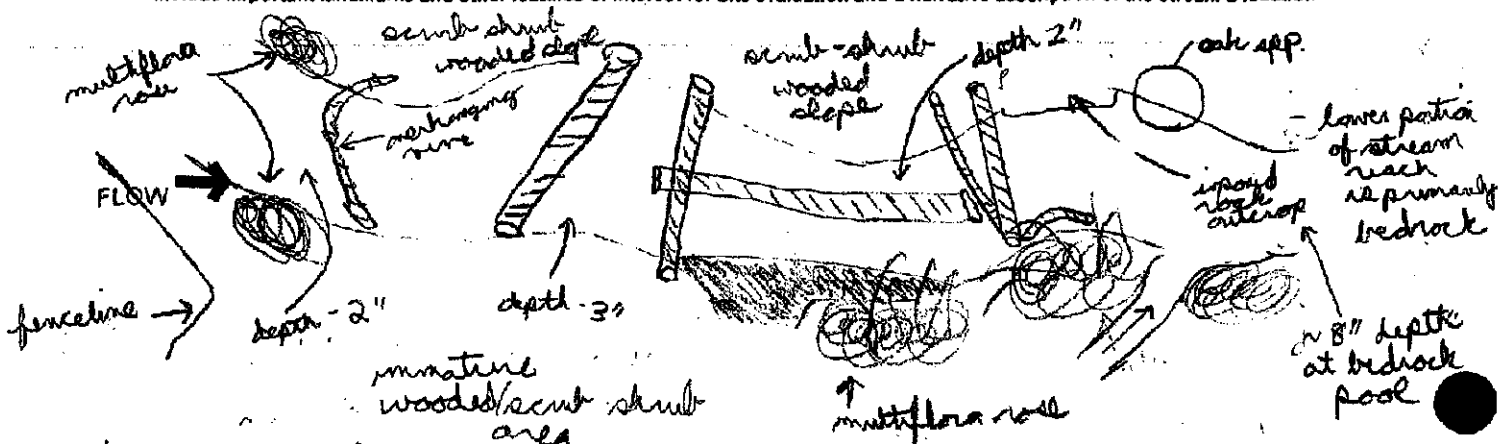 multiflora
rose
scrub shrub
wooded slope
overhanging
vine
scrub-shrub
wooded
slope
depth 2"
oak spp.
- lower portion
of stream
reach
is primarily
bedrock
exposed
rock
outcrop
FLOW
fenceline
depth - 2"
depth - 3"
immature
wooded/scrub shrub
area
multiflora rose
~ 8" depth
at bedrock
pool